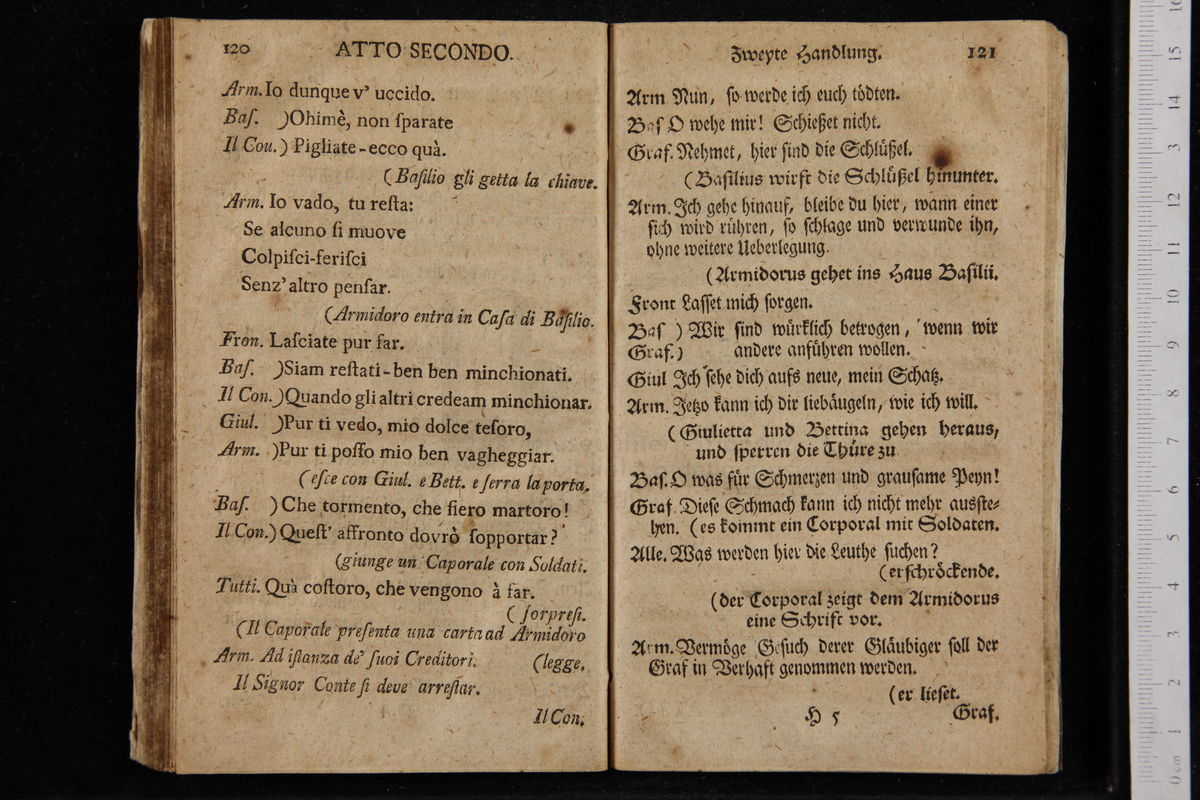 120 ATTO SECONDO.
Arm. Io dunque v' uccido.
Baſ. )Ohimè, non ſparate
Il Cou.) Pigliate-ecco quà.
(Baſilio gli getta la chiave.
Arm. Io vado, tu reſta:
Se alcuno ſi muove
Colpiſci-feriſci
Senz' altro penſar.
(Armidoro entra in Caſa di Baſilio.
Fron. Laſciate pur far.
Baſ. )Siam reſtati-ben ben minchionati.
Il Con.)Quando gli altri credeam minchionar.
Giul. )Pur ti vedo, mio dolce teſoro,
Arm. )Pur ti poſſo mio ben vagheggiar.
(eſce con Giul. e Bett. e ſerra la porta.
Baſ. ) Che tormento, che fiero martoro!
Il Con.) Queſt' affronto dovrò ſopportar?
(giunge un Caporale con Soldati.
Tutti. Quà coſtoro, che vengono à far.
( ſorpreſi.
(Il Caporale preſenta una carta ad Armidoro
Arm. Ad iſtanza de' ſuoi Creditori. (legge.
Il Signor Conte ſi deve arreſtar.
Il Con.
Zweyte Handlung. 121
Arm Nun, ſo werde ich euch tödten.
Baſ O wehe mir! Schießet nicht.
Graf. Nehmet, hier ſind die Schlüßel.
(Baſilius wirft die Schlüßel hinunter.
Arm. Ich gehe hinauf, bleibe du hier, wann einer
ſich wird rühren, ſo ſchlage und verwunde ihn,
ohne weitere Ueberlegung.
(Armidorus gehet ins Haus Baſilii.
Front Laſſet mich ſorgen.
Baſ ) Wir ſind würklich betrogen, wenn wir
Graf.) andere anführen wollen.
Giul Ich ſehe dich aufs neue, mein Schatz.
Arm. Jetzo kann ich dir liebäugeln, wie ich will.
(Giulietta und Bettina gehen heraus,
und ſperren die Thüre zu
Baſ. O was für Schmerzen und grauſame Peyn!
Graf. Dieſe Schmach kann ich nicht mehr ausſte-
hen. (es kommt ein Corporal mit Soldaten.
Alle. Was werden hier die Leuthe ſuchen?
(erſchröckende.
(der Corporal zeigt dem Armidorus
eine Schrift vor.
Arm. Vermöge Geſuch derer Gläubiger ſoll der
Graf in Verhaft genommen werden.
(er lieſet.
H 5 Graf.